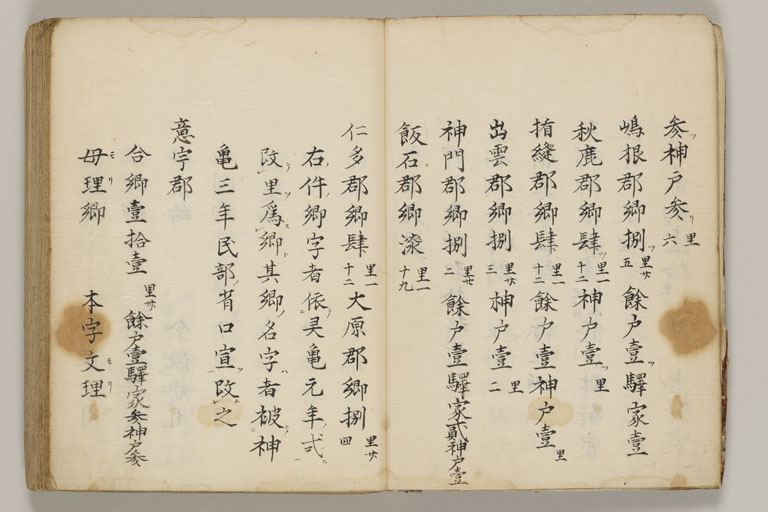 参神戸参里六
嶋根郡郷捌里廿五 餘戸壹驛家壹
秋鹿郡郷肆里一十二神戸壹里
楯縫郡郷肆里一十二餘戸壹神戸壹里
出雲郡郷捌里廿三神戸壹里二
神門郡郷捌里廿二 餘戸壹驛家貳神戸壹
飯石郡郷漆里一十九
仁多郡郷肆里一十二大原郡郷捌里廿四
右件郷字者依霊亀元年弍
改里爲郷其郷名字者被神
亀三年民部省口宣改之
意宇郡
合郷壹拾壹里卅餘戸壹驛家参神戸参
母理郷 本字文理